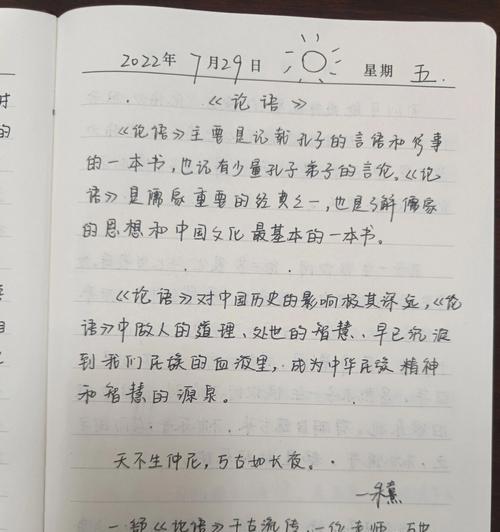 2022年 7月29日 星期 五.
《论语》
《论语》主要是记载孔子的言语和行事
的一本书,也记有少量孔子弟子的言论。《论
语》是儒家重要的经典之一,也是了解儒家
的思想和中国文化最基本的一本书。
《论语》对中国历史的影响极其深远,《论
语》中做人的道理、处世的智慧、早已沉淀
到我们民族的血液里,成为中华民族精神
和智慧的源泉。
天不生仲尼,万古如长夜。
一朱熹
一部《论语》千古流传,一位老师,万世
对
的